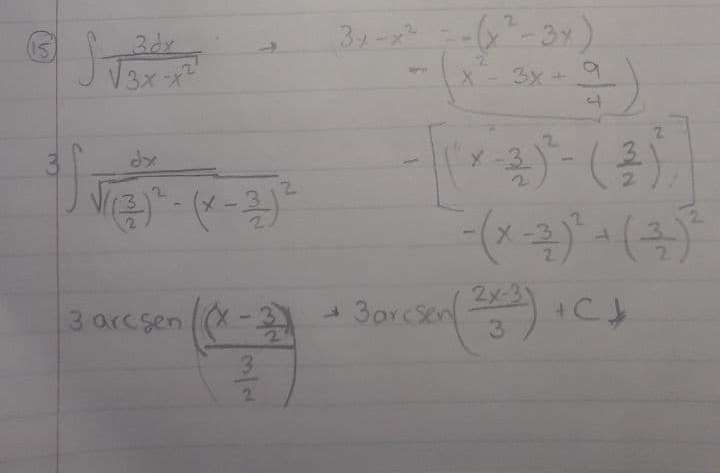 15) ∫ 3dx / √(3x - x²) → 3x - x² = -(x² - 3x)
-(x² - 3x + 9/4)
3∫ dx / √((3/2)² - (x - 3/2)²) -[(x - 3/2)² - (3/2)²]
-(x - 3/2)² + (3/2)²
3 arcsen ((x - 3/2) / (3/2)) → 3arcsen((2x-3)/3) + C